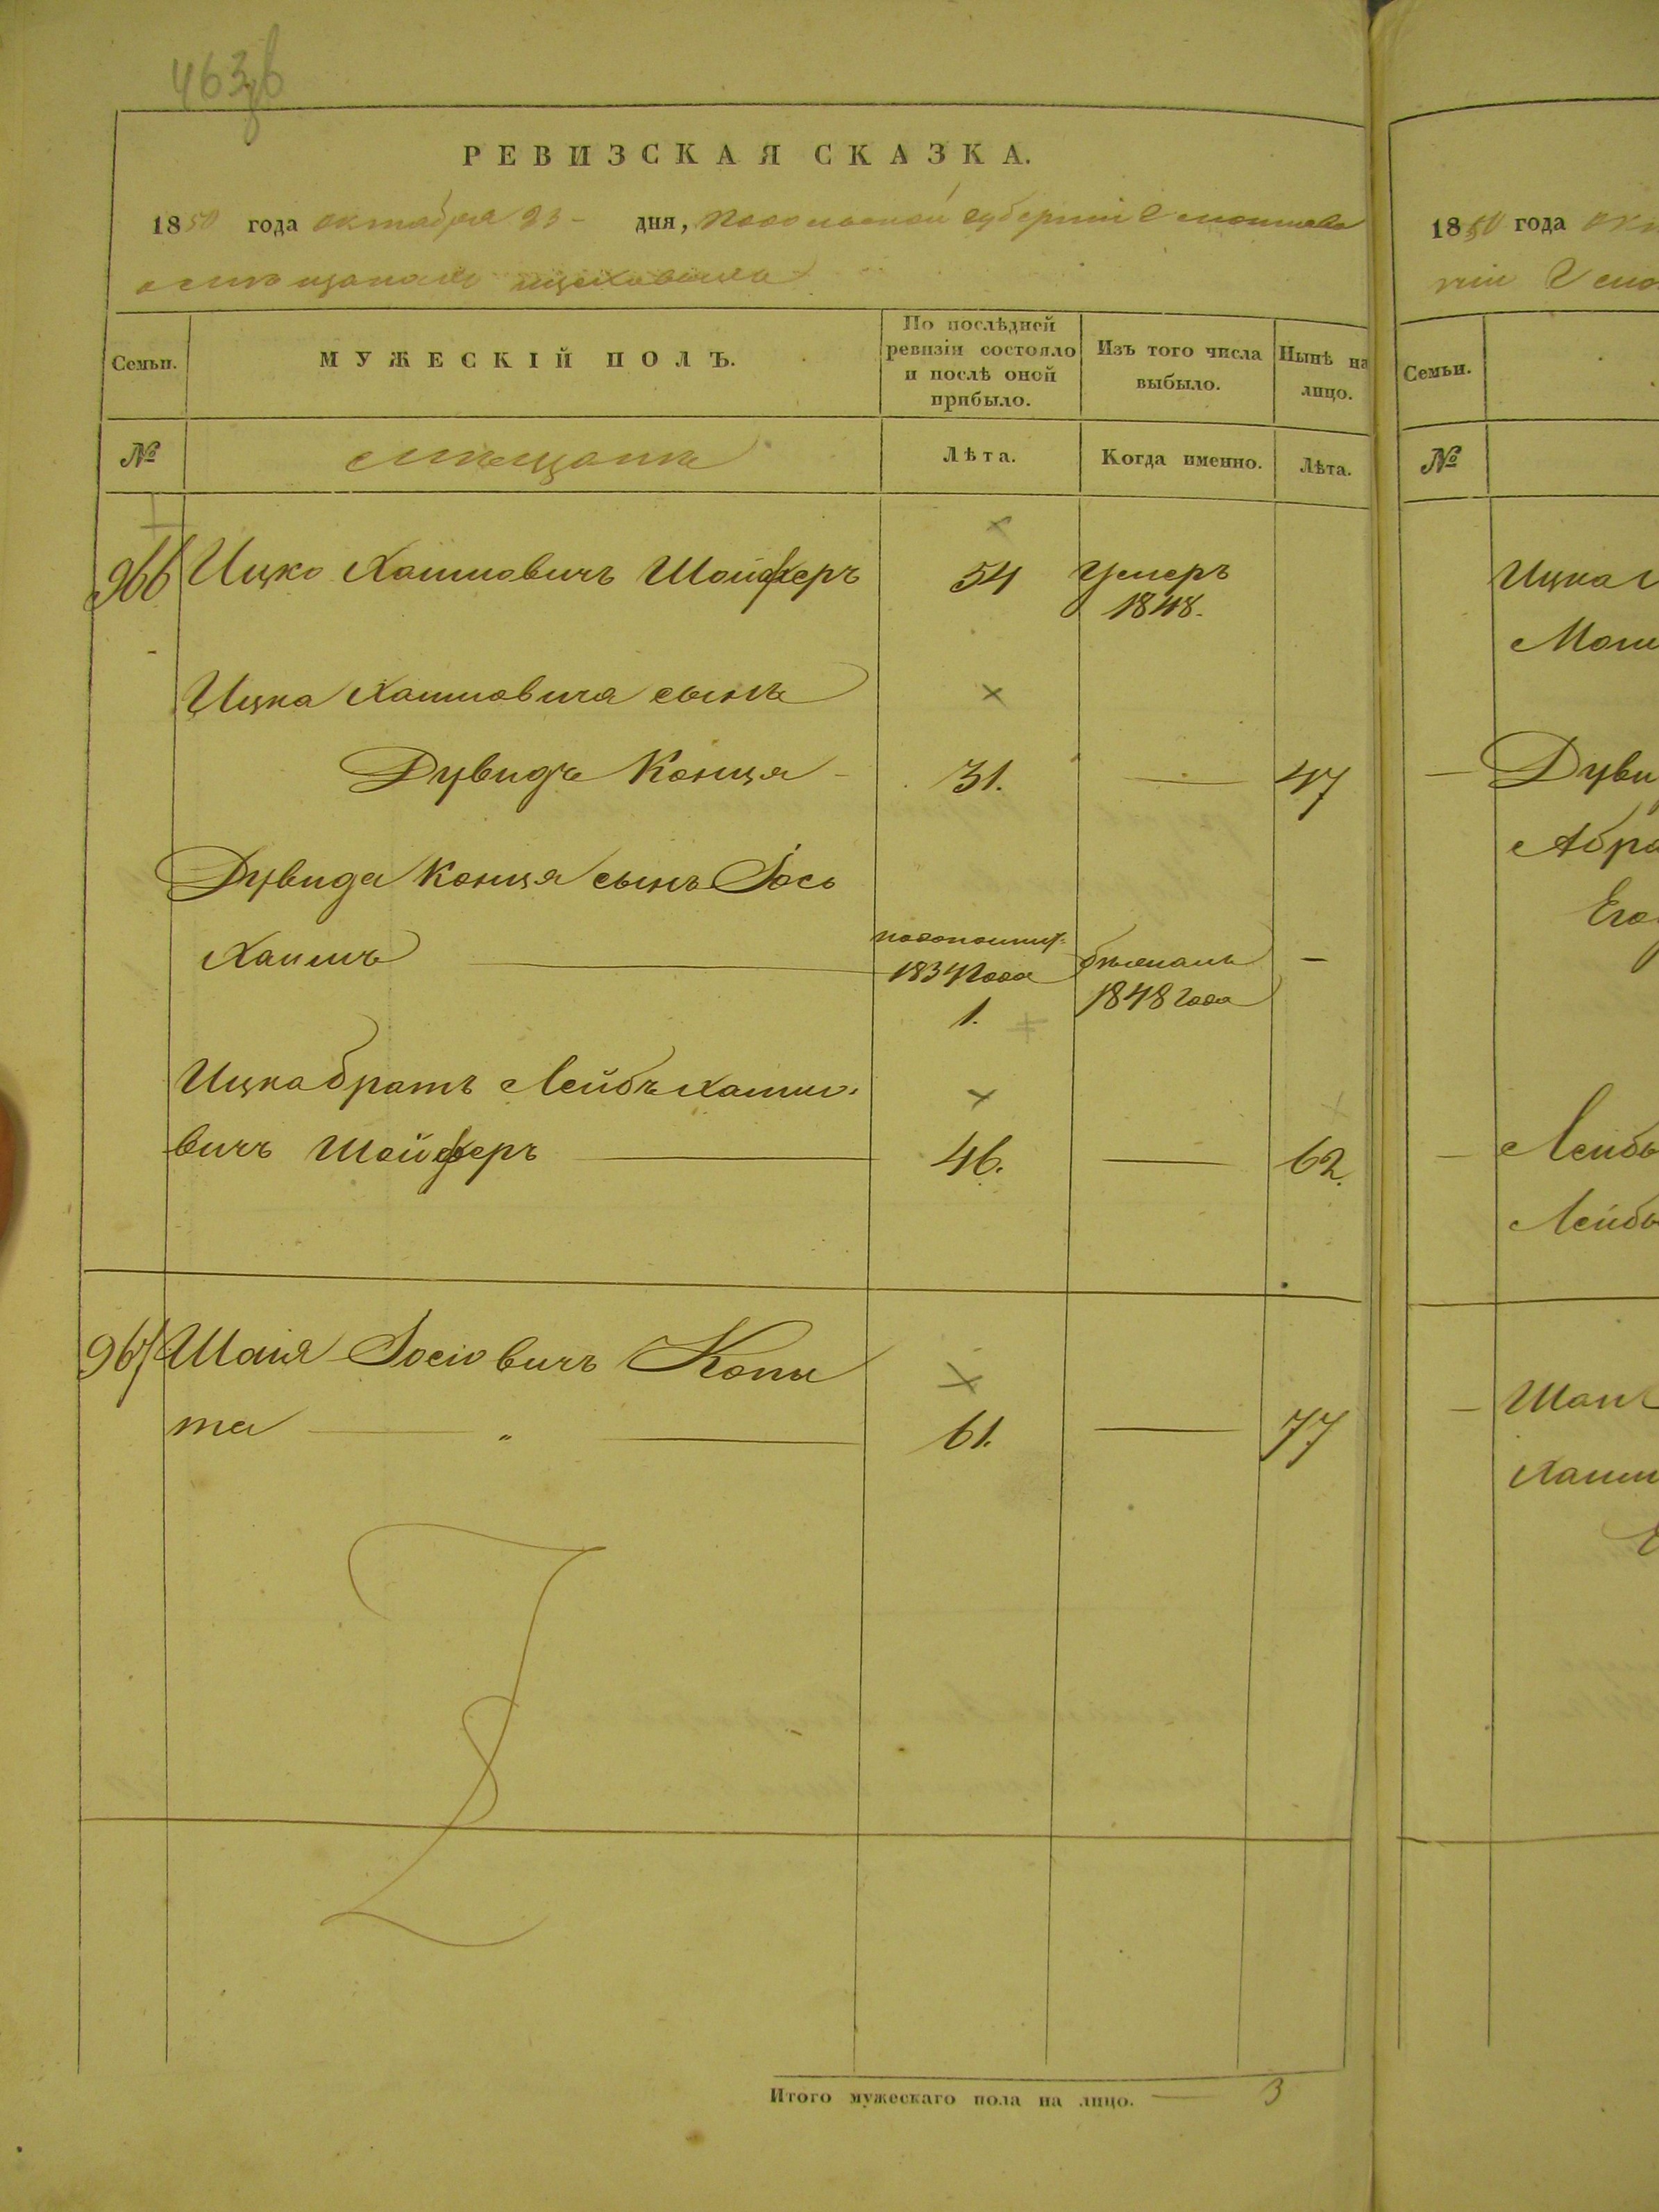 463 об
РЕВИЗСКАЯ СКАЗКА.
1850 года октября 23 дня, Подольской губерніи
о мѣщанахъ
Семьи.
МУЖЕСКІЙ ПОЛЪ.
По послѣдней ревизіи состояло и послѣ оной прибыло.
Изъ того числа выбыло.
Нынѣ на лицо.
№
мѣщане
Лѣта.
Когда именно.
Лѣта.
966 Ицко Хаимовичъ Шойхеръ 54 Умеръ
1848.
Ицка Хаимовича сынъ
Дувидъ Конця 31. — 47
Дувида Конця сынъ Іось
Хаимъ 1834 года —
1. 1848 года
Ицка братъ Лейбъ Хаимо-
вичъ Шойхеръ — 46. — 62.
967 Шаія Іосіовичъ Копы
та — " — 61. — 77
Итого мужескаго пола на лицо. — 3
1850 года
Семьи.
№
Ицка
Дуви
Абра
Его
Лейбы
Лейбы
Хаим